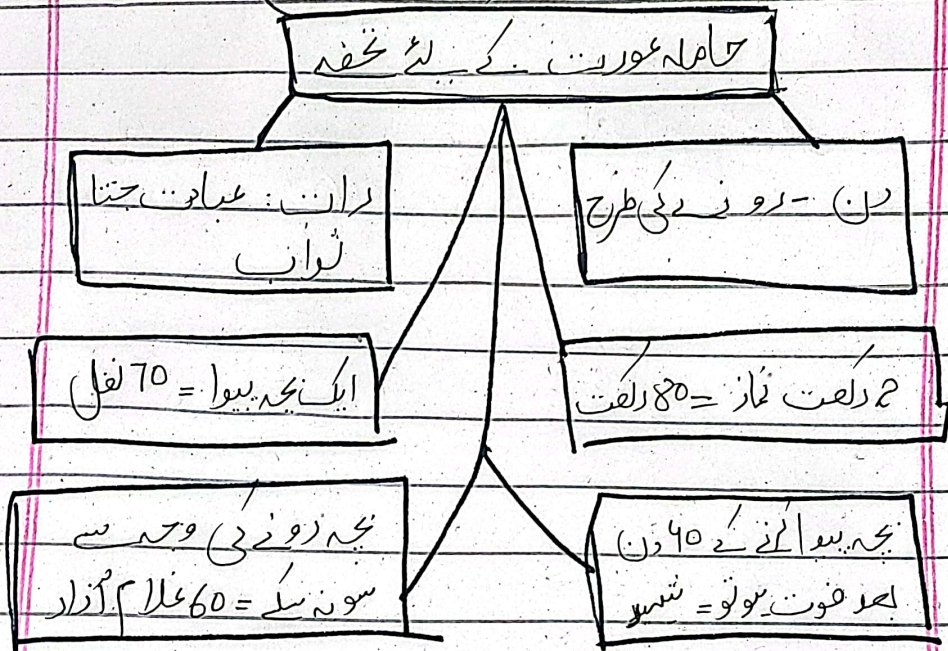 حاملہ عورت کے لئے تحفہ
دن - روزے کی طرح
رات: عبادت جتنا
ثواب
2 رکعت نماز = 80 رکعت
ایک بچہ پیدا = 70 نفل
بچہ پیدا کرنے کے 40 دن
بعد فوت ہو تو = شہید
بچہ رونے کی وجہ سے
سو نہ سکے = 60 غلام آزاد